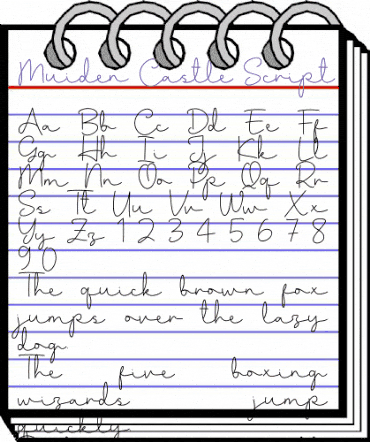 Muiden Castle Script
Aa Bb Cc Dd Ee Ff
Gg Hh Ii Jj Kk Ll
Mm Nn Oo Pp Qq Rr
Ss Tt Uu Vv Ww Xx
Yy Zz 1 2 3 4 5 6 7 8
9 0
The quick brown fox
jumps over the lazy
dog.
The five boxing
wizards jump
quickly.